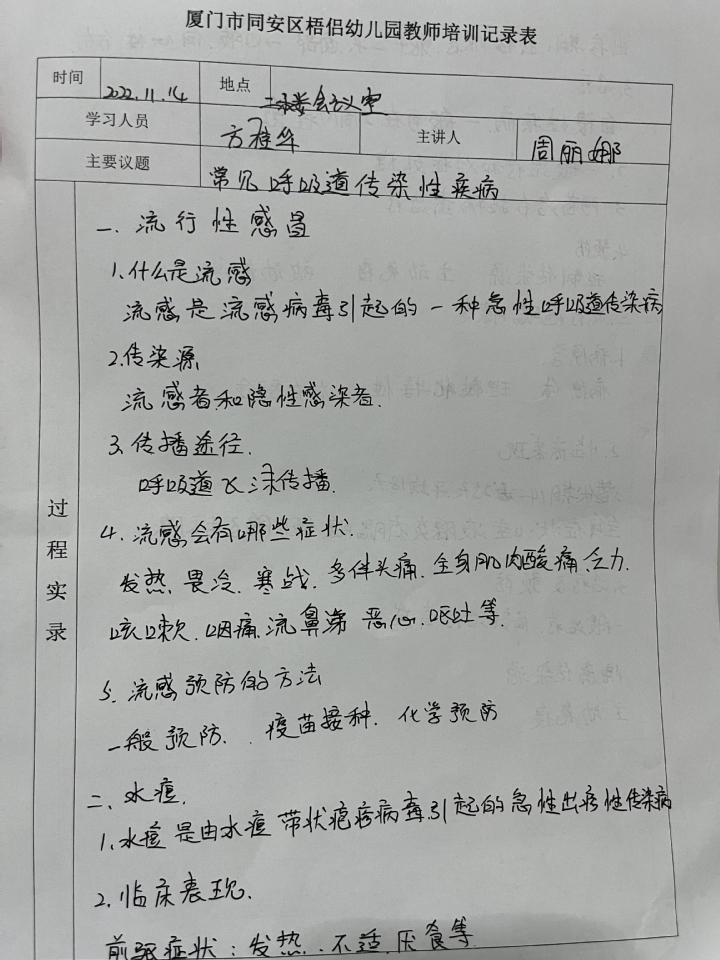 厦门市同安区梧侣幼儿园教师培训记录表
时间 2022.11.14 地点 二楼会议室
学习人员 方雅华 主讲人 周丽娜
主要议题 常见呼吸道传染性疾病
过程实录
一、流行性感冒
1.什么是流感
流感是流感病毒引起的一种急性呼吸道传染病
2.传染源
流感者和隐性感染者.
3.传播途径.
呼吸道飞沫传播.
4.流感会有哪些症状.
发热.畏冷.寒战.多伴头痛.全身肌肉酸痛.乏力.
咳嗽.咽痛.流鼻涕 恶心.呕吐等.
5.流感预防的方法
一般预防.疫苗接种.化学预防
二、水痘.
1.水痘是由水痘带状疱疹病毒引起的急性出疹性传染病
2.临床表现.
前驱症状:发热.不适.厌食等